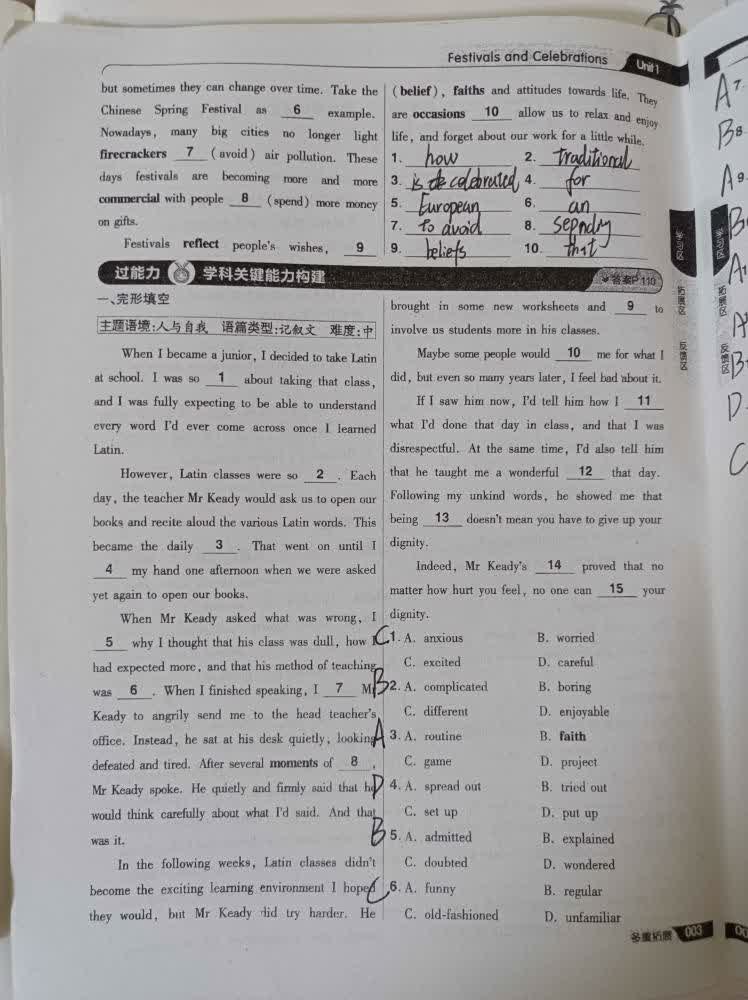 Festivals and Celebrations
Unit 1
but sometimes they can change over time. Take the
Chinese Spring Festival as 6 example.
Nowadays, many big cities no longer light
firecrackers 7 (avoid) air pollution. These
days festivals are becoming more and more
commercial with people 8 (spend) more money
on gifts.
Festivals reflect people's wishes, 9
(belief), faiths and attitudes towards life. They
are occasions 10 allow us to relax and enjoy
life, and forget about our work for a little while.
1. how 2. traditional
3. is celebrated 4. for
5. European 6. an
7. to avoid 8.
9. beliefs 10. that
过能力 学科关键能力构建
答案P110
一、完形填空
主题语境:人与自我 语篇类型:记叙文 难度:中
When I became a junior, I decided to take Latin
at school. I was so 1 about taking that class,
and I was fully expecting to be able to understand
every word I'd ever come across once I learned
Latin.
However, Latin classes were so 2 . Each
day, the teacher Mr Keady would ask us to open our
books and recite aloud the various Latin words. This
became the daily 3 . That went on until I
4 my hand one afternoon when we were asked
yet again to open our books.
When Mr Keady asked what was wrong, I
5 why I thought that his class was dull, how I
had expected more, and that his method of teaching
was 6 . When I finished speaking, I 7 Mr
Keady to angrily send me to the head teacher's
office. Instead, he sat at his desk quietly, looking
defeated and tired. After several moments of 8 ,
Mr Keady spoke. He quietly and firmly said that he
would think carefully about what I'd said. And that
was it.
In the following weeks, Latin classes didn't
become the exciting learning environment I hoped
they would, but Mr Keady did try harder. He
brought in some new worksheets and 9 to
involve us students more in his classes.
Maybe some people would 10 me for what I
did, but even so many years later, I feel bad about it.
If I saw him now, I'd tell him how I 11
what I'd done that day in class, and that I was
disrespectful. At the same time, I'd also tell him
that he taught me a wonderful 12 that day.
Following my unkind words, he showed me that
being 13 doesn't mean you have to give up your
dignity.
Indeed, Mr Keady's 14 proved that no
matter how hurt you feel, no one can 15 your
dignity.
C 1. A. anxious B. worried
C. excited D. careful
B 2. A. complicated B. boring
C. different D. enjoyable
A 3. A. routine B. faith
C. game D. project
D 4. A. spread out B. tried out
C. set up D. put up
B 5. A. admitted B. explained
C. doubted D. wondered
C 6. A. funny B. regular
C. old-fashioned D. unfamiliar
多重拓展 003
拓展区
反馈区
拓展区
反馈区
A 7.
B 8.
A 9.
D
C